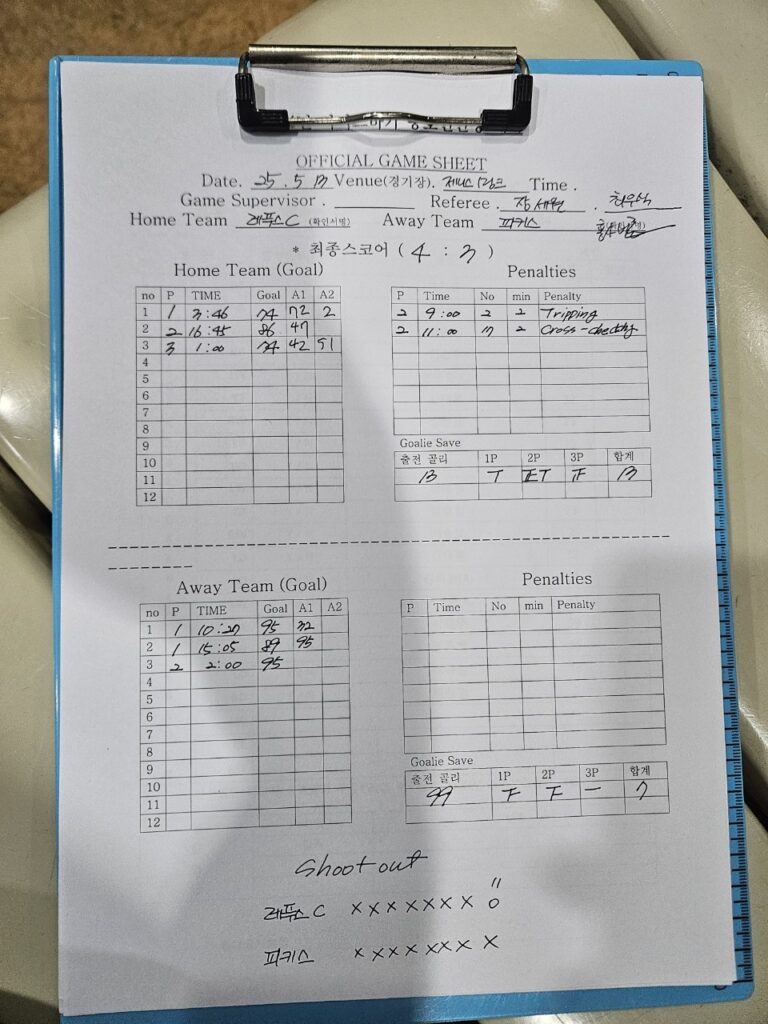 OFFICIAL GAME SHEET
Date. 25. 5 13 Venue(경기장). 제니스 링크 Time .
Game Supervisor . Referee . 장세원 . 최우식
Home Team 레푸스C (확인서명) Away Team 피키스
* 최종스코어 ( 4 : 3 )
Home Team (Goal) Penalties
no P TIME Goal A1 A2 P Time No min Penalty
1 1 3:46 74 72 2 2 9:00 2 2 Tripping
2 2 16:45 86 47 2 11:00 17 2 Cross-checking
3 3 1:00 74 42 51
4
5
6
7
8
9 Goalie Save
10 출전 골리 1P 2P 3P 합계
11 13 13
12
Away Team (Goal) Penalties
no P TIME Goal A1 A2 P Time No min Penalty
1 1 10:27 95 32
2 1 15:05 89 95
3 2 2:00 95
4
5
6
7
8
9 Goalie Save
10 출전 골리 1P 2P 3P 합계
11 99 一 7
12
Shoot out
레푸스 C X X X X X X X O
피키스 X X X X X X X X